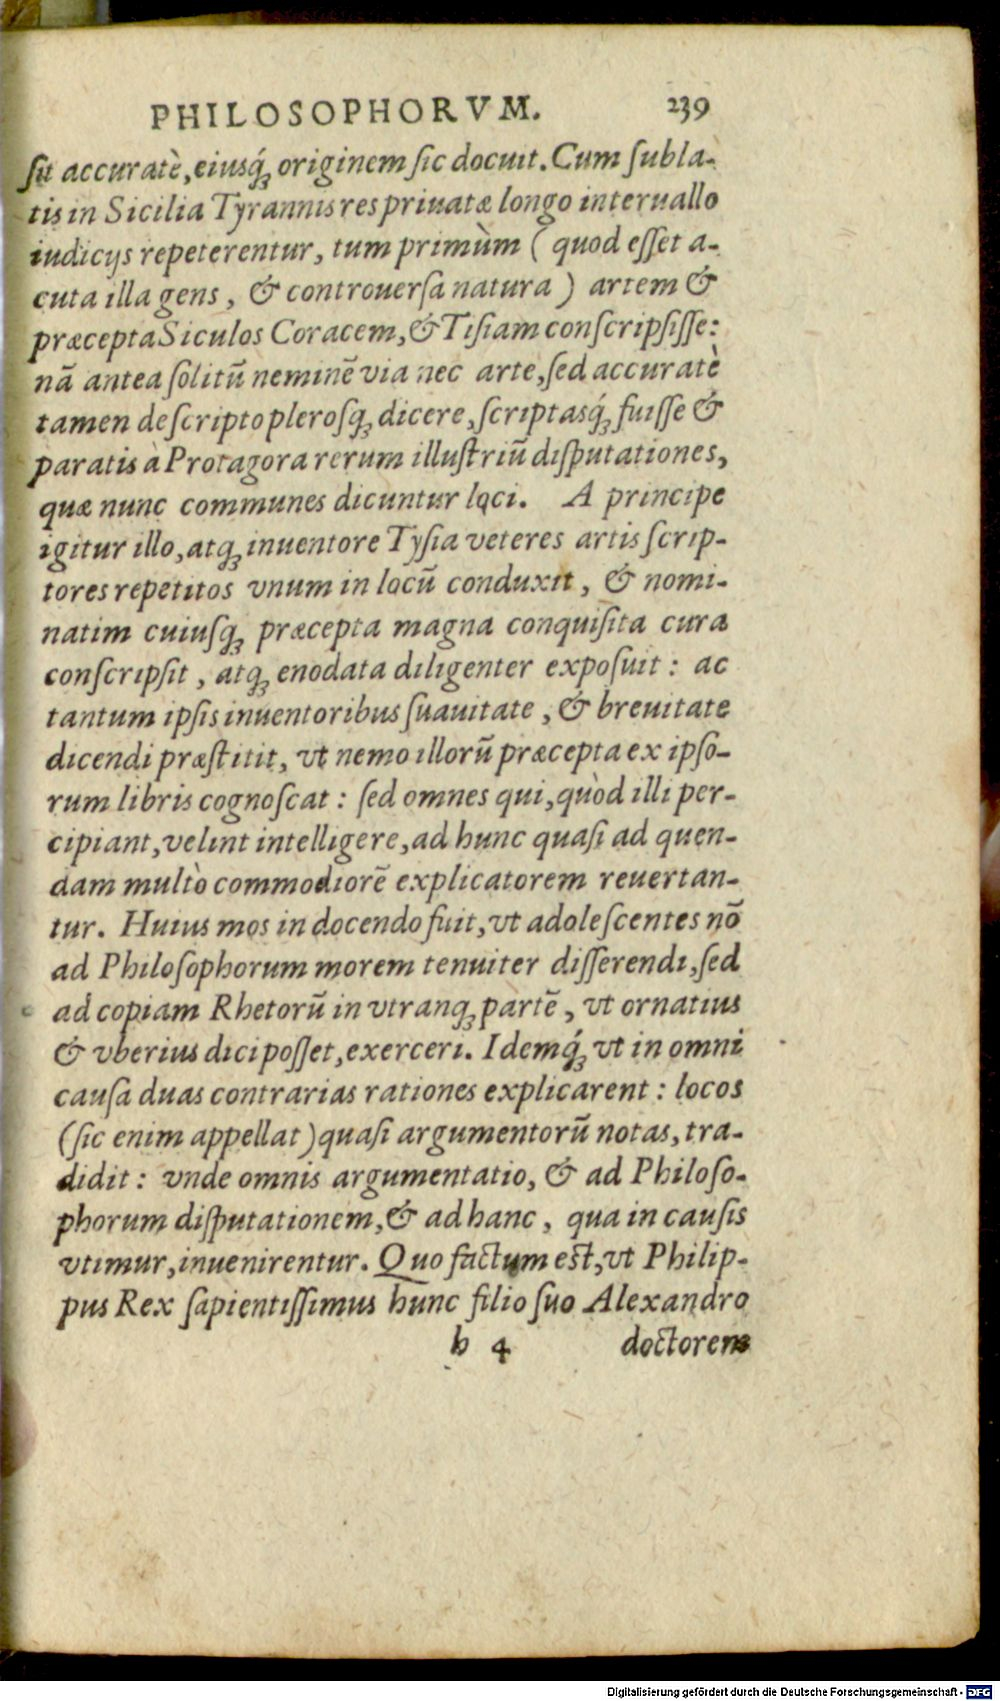 PHILOSOPHORVM. 239
ſit accuratè, eiusq́ꝫ originem ſic docuit. Cum ſubla-
tis in Sicilia Tyrannis res priuatæ longo interuallo
iudicijs repeterentur, tum primùm ( quod eſſet a-
cuta illa gens, & controuerſa natura ) artem &
præcepta Siculos Coracem, & Tiſiam conſcripſiſſe:
nā antea ſolitū neminē via nec arte, ſed accuratè
tamen de ſcripto pleroſqꝫ dicere, ſcriptasq́ꝫ fuiſſe &
paratis à Protagora rerum illuſtriū diſputationes,
quæ nunc communes dicuntur loci. A principe
igitur illo, atqꝫ inuentore Tyſia veteres artis ſcrip-
tores repetitos vnum in locū conduxit, & nomi-
natim cuiuſqꝫ præcepta magna conquiſita cura
conſcripſit, atqꝫ enodata diligenter expoſuit: ac
tantum ipſis inuentoribus ſuauitate, & breuitate
dicendi præſtitit, vt nemo illorū præcepta ex ipſo-
rum libris cognoſcat: ſed omnes qui, quòd illi per-
cipiant, velint intelligere, ad hunc quaſi ad quen-
dam multò commodiorē explicatorem reuertan-
tur. Huius mos in docendo fuit, vt adoleſcentes nō
ad Philoſophorum morem tenuiter diſſerendi, ſed
ad copiam Rhetorū in vtranqꝫ partē, vt ornatius
& vberius dici poſſet, exerceri. Idemq́ꝫ vt in omni
cauſa duas contrarias rationes explicarent: locos
(ſic enim appellat) quaſi argumentorū notas, tra-
didit: vnde omnis argumentatio, & ad Philoſo-
phorum diſputationem, & ad hanc, qua in cauſis
vtimur, inuenirentur. Quo factum eſt, vt Philip-
pus Rex ſapientiſſimus hunc filio ſuo Alexandro
h 4 doctorem
Digitalisierung gefördert durch die Deutsche Forschungsgemeinschaft - DFG